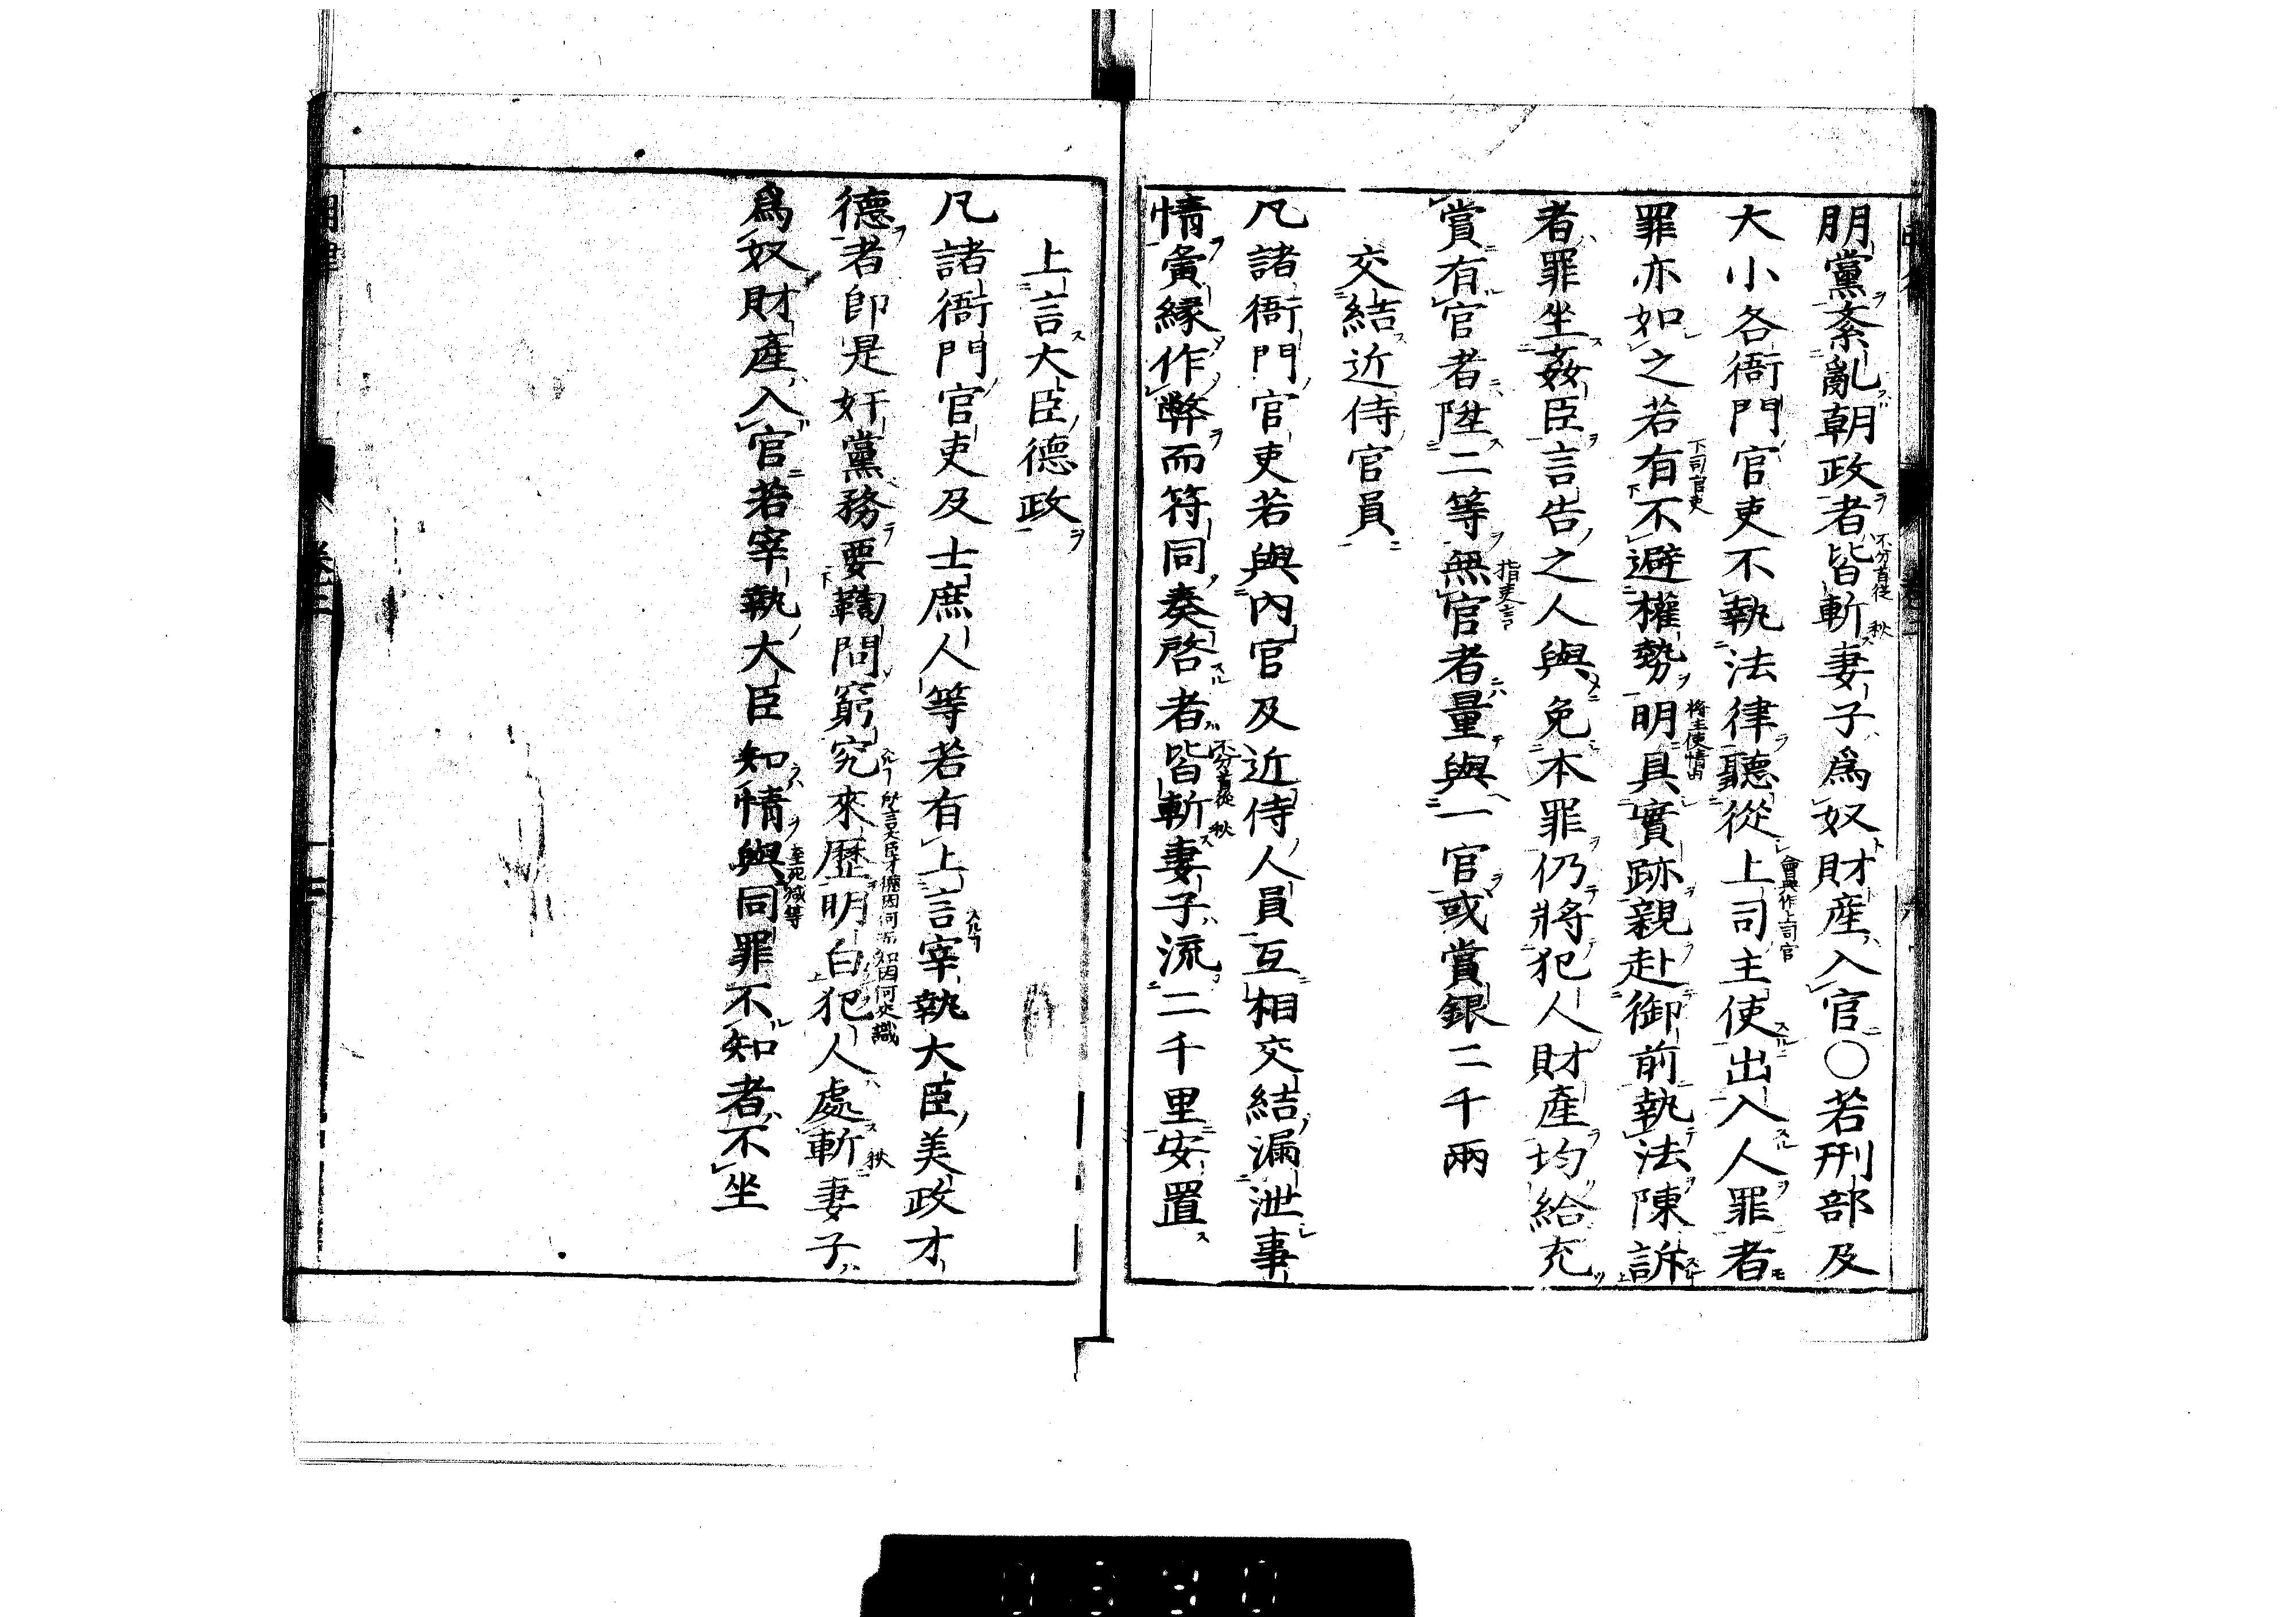 朋黨紊亂朝政者皆斬妻子爲奴財産入官○若刑部及
不分首從
秋
大小各衙門官吏不執法律聽從上司主使出入人罪者
會與作上司官
罪亦如之若有不避權勢明具實跡親赴御前執法陳訴
下司官吏
將主使情由
者罪坐姦臣言告之人與免本罪仍將犯人財產均給充
賞有官者陞二等無官者量與一官或賞銀二千兩
指吏言
交結近侍官員
凡諸衙門官吏若與內官及近侍人員互相交結漏泄事
情夤縁作弊而符同奏啓者皆斬妻子流二千里安置
不分首從
秋
上言大臣德政
凡諸衙門官吏及士庶人等若有上言宰執大臣美政才
德者即是奸黨務要鞫問窮究來歷明白犯人處斬妻子
因何而知因何
秋
爲奴財産入官若宰執大臣知情與同罪不知者不坐
至死減等
明律
卷二